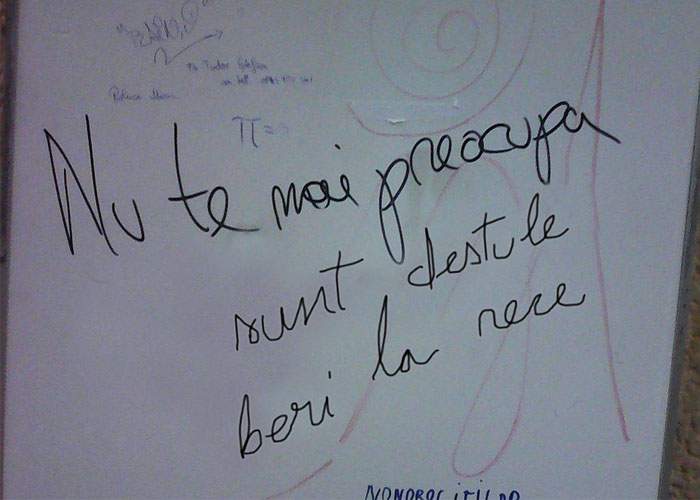 π =
Nu te mai preocupa
sunt destule
beri la rece